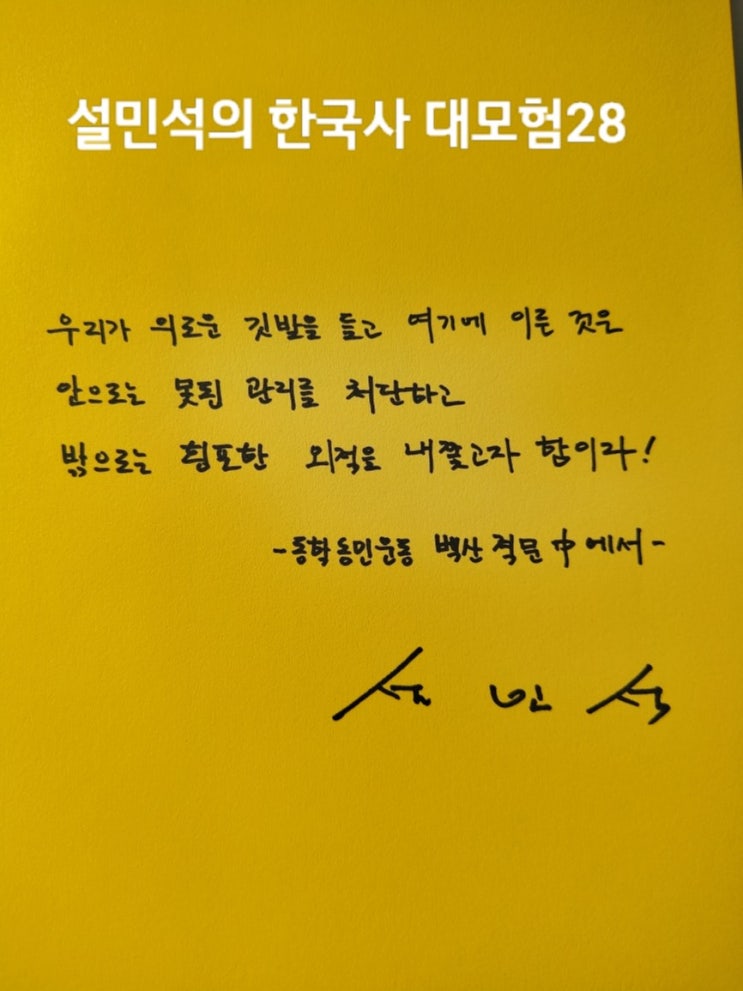 설민석의 한국사 대모험28
우리가 의로운 깃발을 들고 여기에 이른 것은
안으로는 못된 관리를 처단하고
밖으로는 횡포한 외적을 내쫓고자 함이라!
-동학농민운동 백산 격문 中에서-
설 민 석